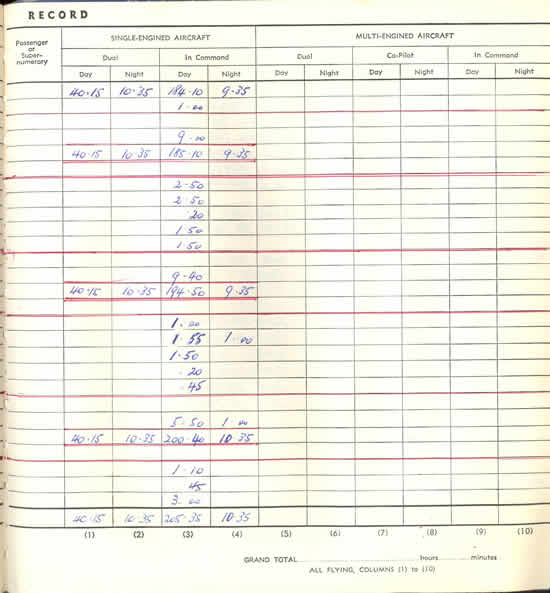 RECORD
Passenger or Super-numerary SINGLE-ENGINED AIRCRAFT MULTI-ENGINED AIRCRAFT
Dual In Command Dual Co-Pilot In Command
Day Night Day Night Day Night Day Night Day Night
40·15 10·35 184·10 9·35
1·00
9·00
40·15 10·35 185·10 9·35
2·50
2·50
20
1·50
1·50
9·40
40·15 10·35 194·50 9·35
1·00
1·55 1·00
1·50
·20
·45
5·50 1·00
40·15 10·35 200·40 10·35
1·10
45
3·00
40·15 10·35 205·35 10·35
(1) (2) (3) (4) (5) (6) (7) (8) (9) (10)
GRAND TOTAL hours minutes
ALL FLYING, COLUMNS (1) to (10)